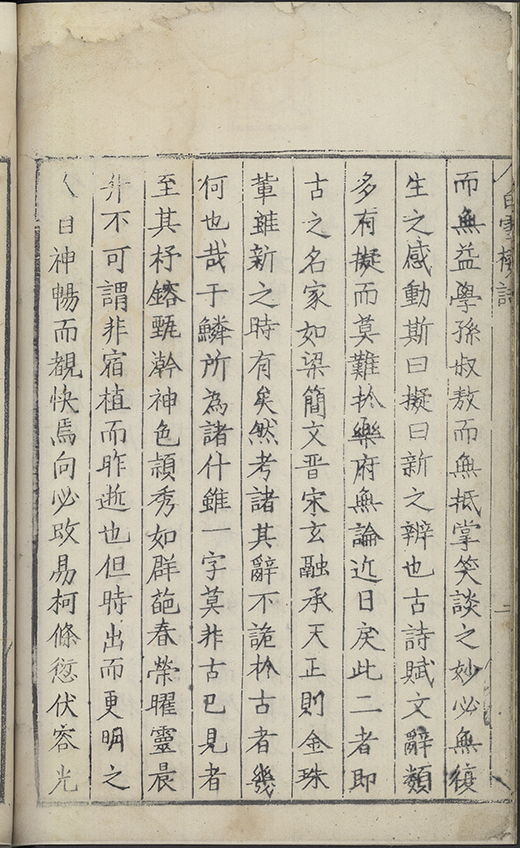 白雪樓詩 二
而無益學孫叔敖而無抵掌笑談之妙必無復
生之感動斯曰擬曰新之辨也古詩賦文辭類
多有擬而莫難扵樂府無論近日戾此二者即
古之名家如梁簡文晋宋玄融承天正則金珠
軰雖新之時有矣然考諸其辭不詭扵古者幾
何也哉于鱗所為諸什雖一字莫非古已見者
至其杼鎔甄神色穎秀如群葩春榮曜靈晨
升不可謂非宿植而昨逝也但時出而更明之
人日神暢而覩快焉向必改易柯條愆伏容光